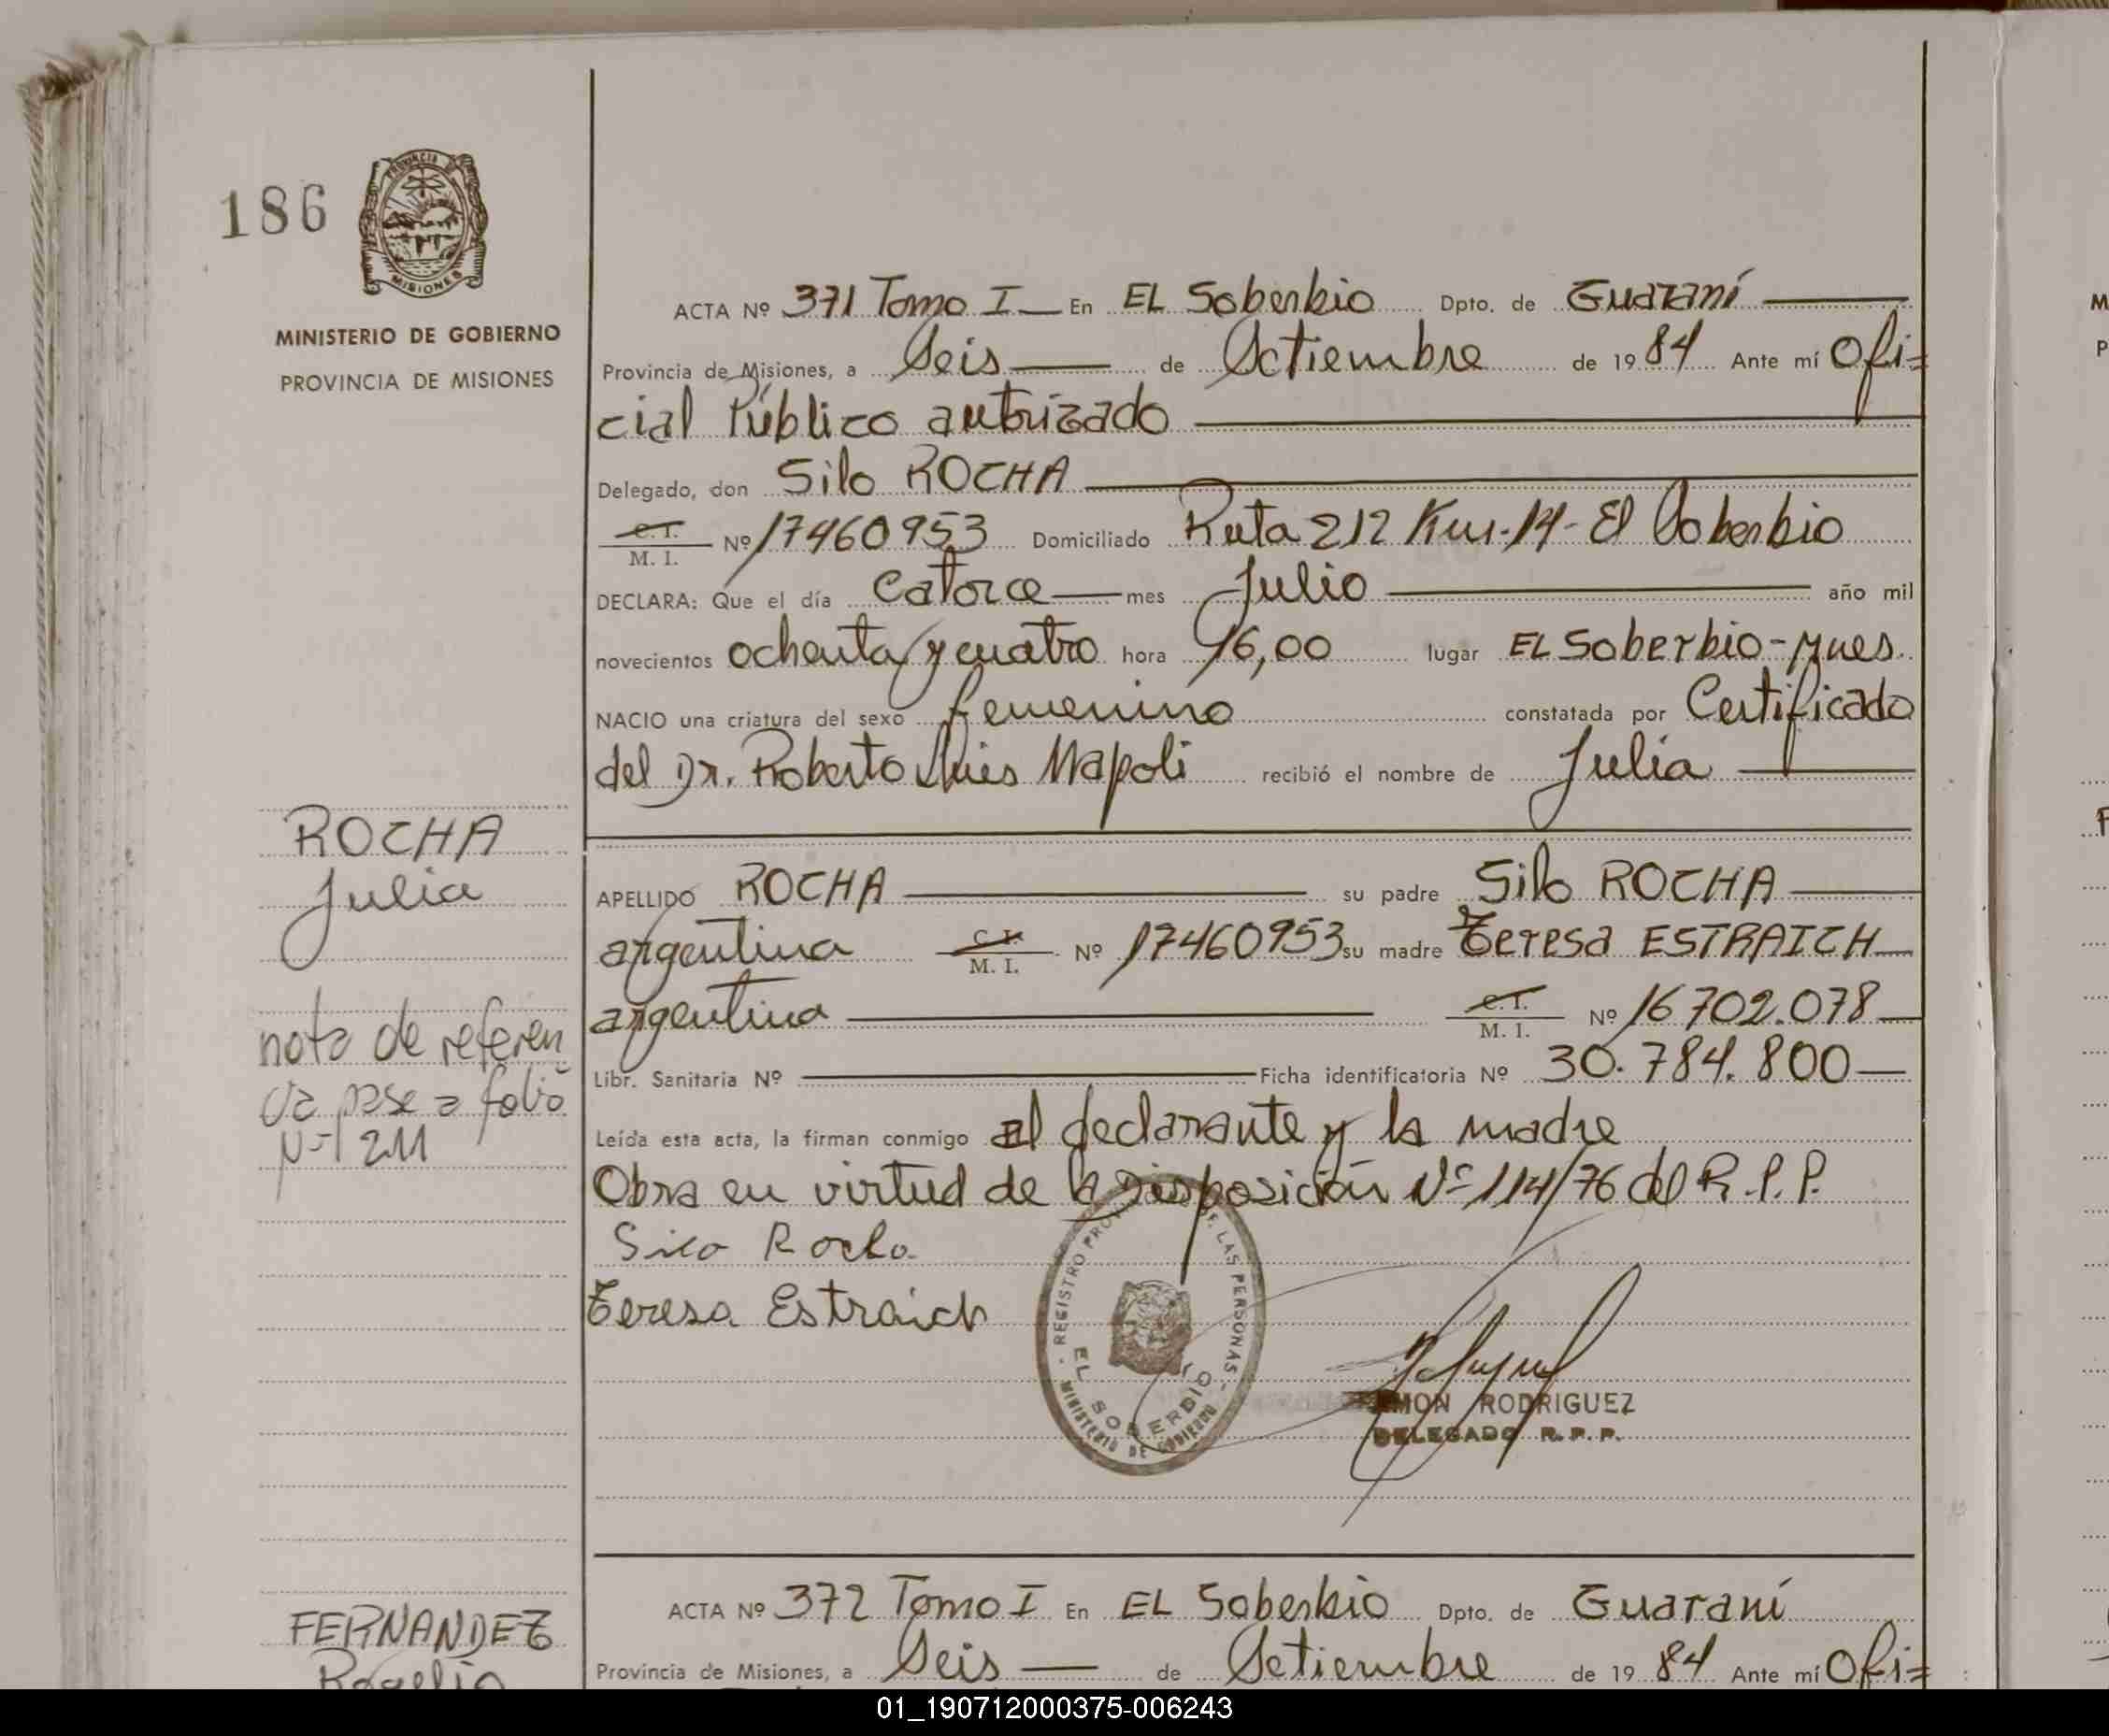 186
PROVINCIA DE
MISIONES
MINISTERIO DE GOBIERNO
PROVINCIA DE MISIONES
ACTA Nº 371 Tomo I — En EL Soberbio Dpto. de Guaraní
Provincia de Misiones, a Seis — de Setiembre de 1984 Ante mí Ofi=
cial Público autorizado
Delegado, don Silo ROCHA
C.I.
M. I. Nº 17460953 Domiciliado Ruta 212 Km. 14 - El Soberbio
DECLARA: Que el día Catorce — mes Julio año mil
novecientos ochenta y cuatro hora 16,00 lugar EL Soberbio - Mnes.
NACIO una criatura del sexo femenino constatada por Certificado
del Dr. Roberto Luis Napoli recibió el nombre de Julia
ROCHA
Julia
APELLIDO ROCHA su padre Silo ROCHA
argentina C.I.
M. I. Nº 17460953 su madre Teresa ESTRAICH
argentina C.I.
M. I. Nº 16702.078
Libr. Sanitaria Nº Ficha identificatoria Nº 30.784.800
Leída esta acta, la firman conmigo el declarante y la madre
Obra en virtud de la Disposición Nº 114/76 del R.P.P.
Silo Rocha
Teresa Estraich
nota de referen
cia pase a folio
Nº 211
REGISTRO DE LAS PERSONAS
EL SOBERBIO
MINISTERIO DE GOBIERNO
RODRIGUEZ
DELEGADO R. P. P.
ACTA Nº 372 Tomo I En EL Soberbio Dpto. de Guaraní
FERNANDEZ
Rogelio
Provincia de Misiones, a Seis — de Setiembre de 1984 Ante mí Ofi=
01_190712000375-006243